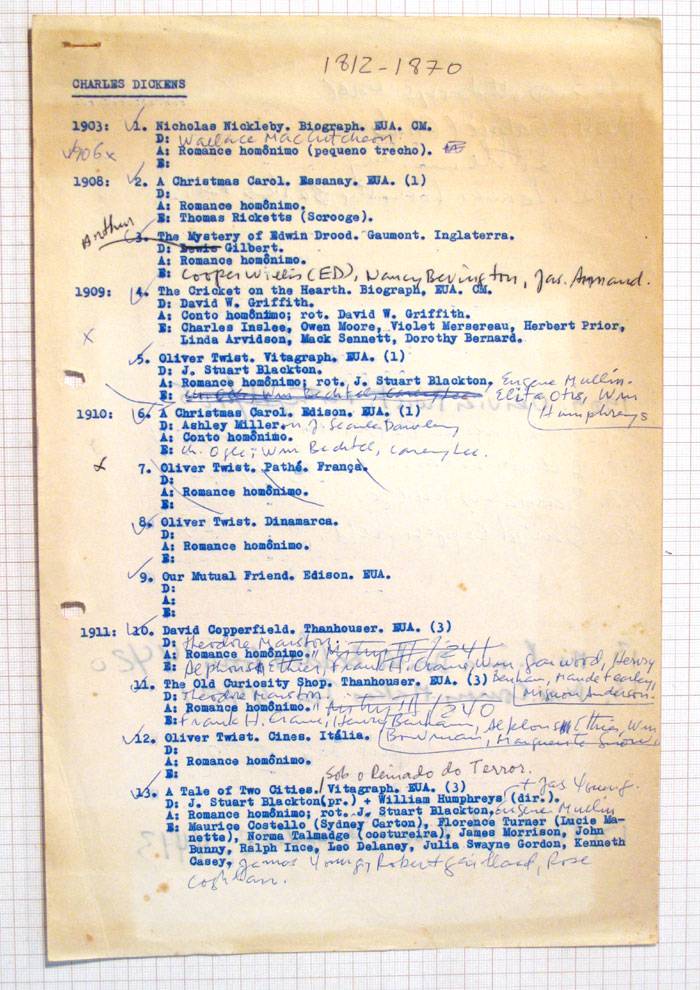 1812-1870
CHARLES DICKENS
1903: 1. Nicholas Nickleby. Biograph. EUA. CM.
D: Wallace MacCutcheon.
1906 x
A: Romance homônimo (pequeno trecho).
E:
1908: 2. A Christmas Carol. Essanay. EUA. (1)
D:
A: Romance homônimo.
E: Thomas Ricketts (Scrooge).
Arthur
3. The Mystery of Edwin Drood. Gaumont. Inglaterra.
D: Lewis Gilbert.
A: Romance homônimo.
E: Cooper Willis (ED), Nancy Bevington, Jas. Annand.
1909: 4. The Cricket on the Hearth. Biograph, EUA. CM.
D: David W. Griffith.
A: Conto homônimo; rot. David W. Griffith.
x
E: Charles Inslee, Owen Moore, Violet Mersereau, Herbert Prior,
Linda Arvidson, Mack Sennett, Dorothy Bernard.
5. Oliver Twist. Vitagraph. EUA. (1)
D: J. Stuart Blackton.
A: Romance homônimo; rot. J. Stuart Blackton, Eugene Mullin.
E: Ch. Ogle, Wm Bechtel, Carey Lee. Elita Otis, Wm
Humphreys
1910: 6. A Christmas Carol. Edison. EUA. (1)
D: Ashley Miller. J. Searle Dawley
A: Conto homônimo.
E: Ch. Ogle, Wm Bechtel, Carey Lee.
x
7. Oliver Twist. Pathé. França.
D:
A: Romance homônimo.
E:
8. Oliver Twist. Dinamarca.
D:
A: Romance homônimo.
E:
9. Our Mutual Friend. Edison. EUA.
D:
A:
E:
1911: 10. David Copperfield. Thanhouser. EUA. (3)
D: Theodore Marston.
A: Romance homônimo. III/241
E: Alphonse Ethier, Frank H. Crane, Wm Garwood, Henry
Benham, Maude Fealey,
Mignon Anderson.
11. The Old Curiosity Shop. Thanhouser. EUA. (3)
D: Theodore Marston.
A: Romance homônimo. III/240
E: Frank H. Crane, Harry Benham, Alphonse Ethier, Wm
Bowman, Marguerite Snow
12. Oliver Twist. Cines. Itália.
D:
A: Romance homônimo.
E:
Sob o Reinado do Terror.
13. A Tale of Two Cities. Vitagraph. EUA. (3)
+ Jas Young.
D: J. Stuart Blackton(pr.) + William Humphreys (dir.).
A: Romance homônimo; rot. J. Stuart Blackton, Eugene Mullin
E: Maurice Costello (Sydney Carton), Florence Turner (Lucie Ma-
nette), Norma Talmadge (costureira), James Morrison, John
Bunny, Ralph Ince, Leo Delaney, Julia Swayne Gordon, Kenneth
Casey, James Young, Robert Gaillard, Rose
Coghlan.